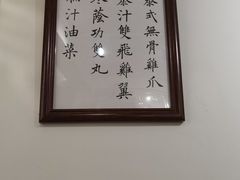 泰式無骨雞爪
泰汁雙飛雞翼
蔭功雙丸
汁油菜